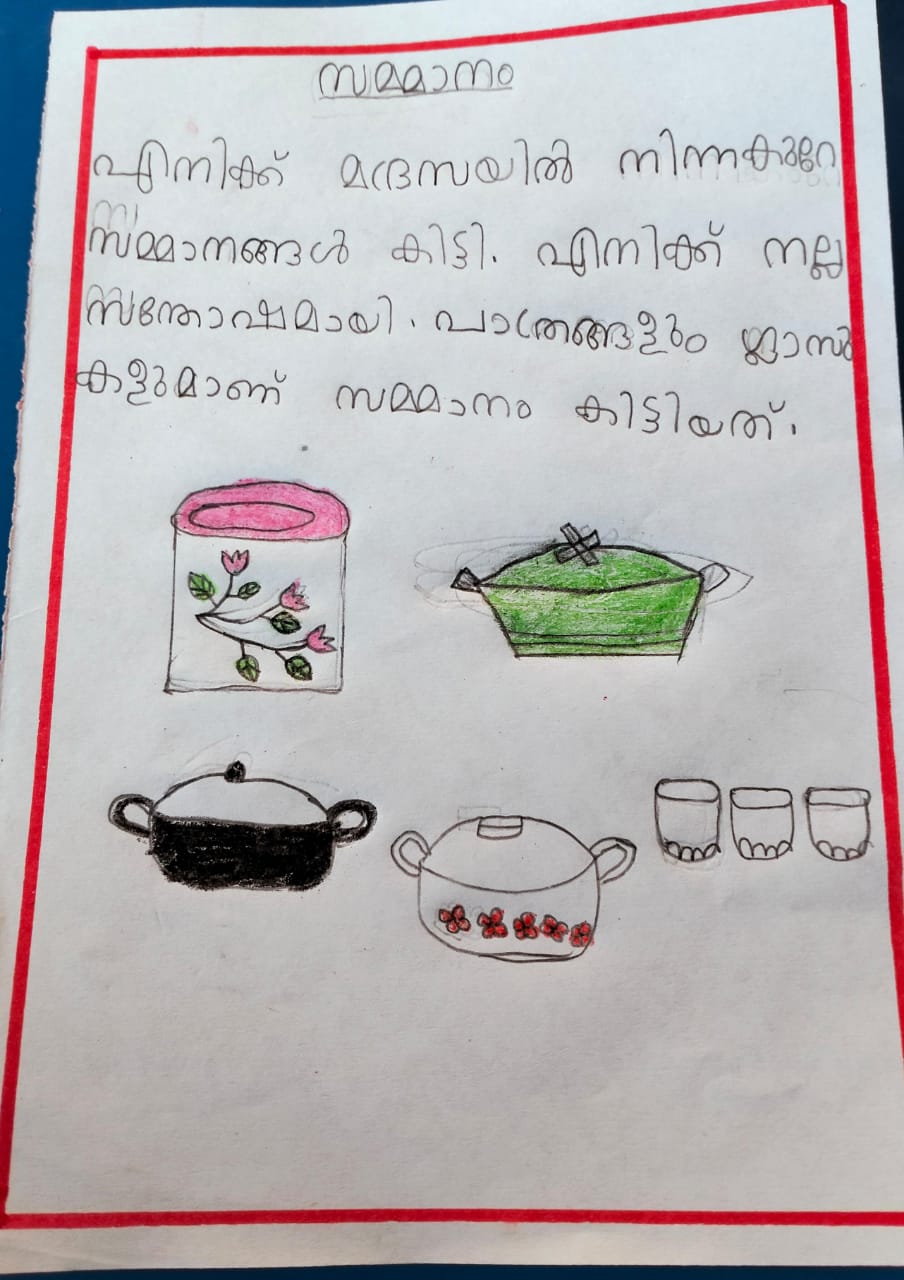 സമ്മാനം
എനിക്ക് മദ്രസയിൽ നിന്നകുറേ
സമ്മാനങ്ങൾ കിട്ടി. എനിക്ക് നല്ല
സന്തോഷമായി. പാത്രങ്ങളും ഗ്ലാസു
കളുമാണ് സമ്മാനം കിട്ടിയത്.